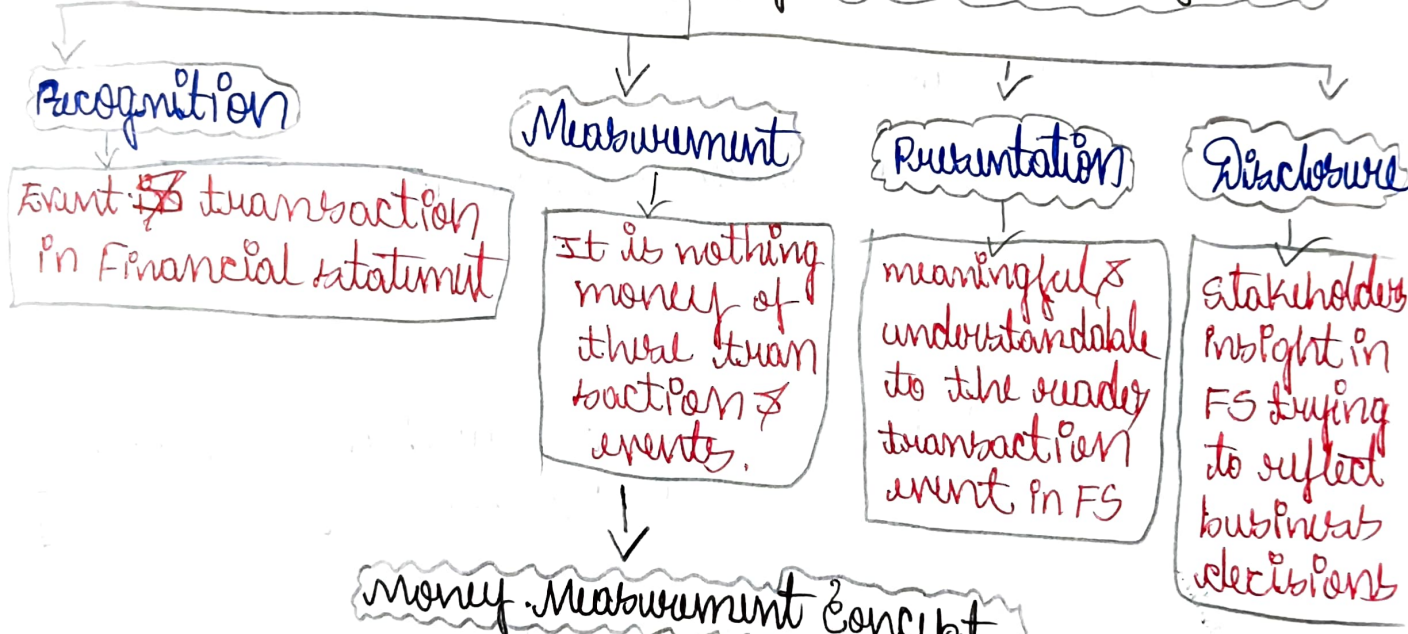 Recognition
Event & transaction
in Financial statement
Measurement
It is nothing
money of
these tran
saction &
events.
Money Measurement Concept
Presentation
meaningful &
understandable
to the reader
transaction
event in FS
Disclosure
stakeholders
insight in
FS trying
to reflect
business
decisions